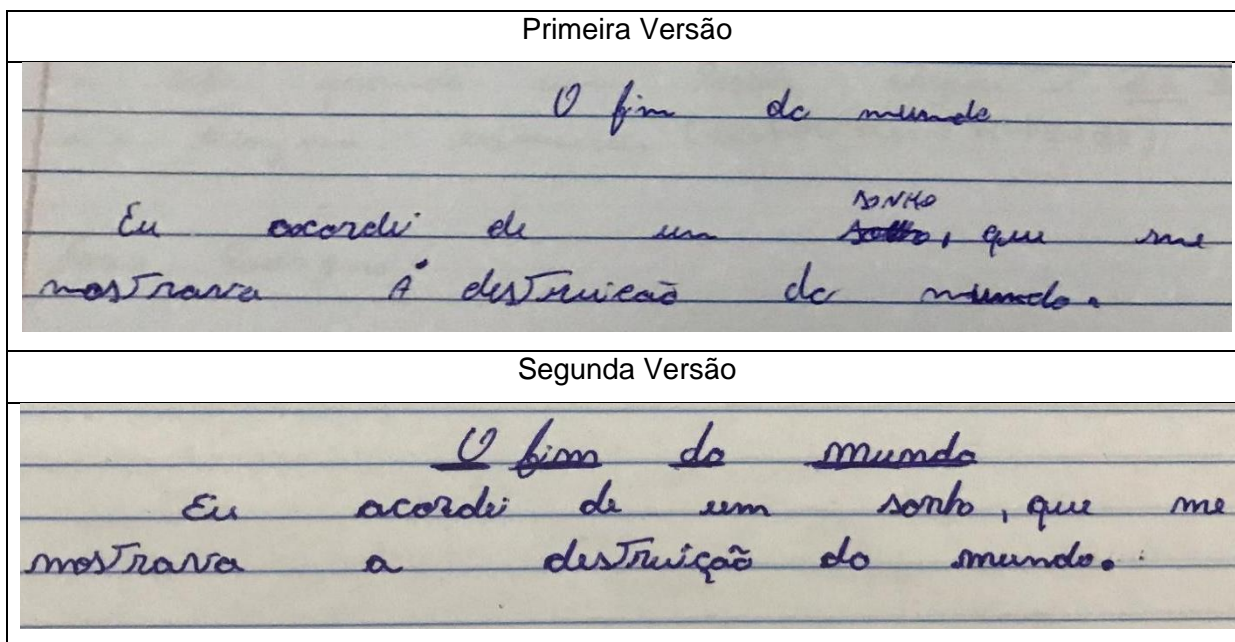 Primeira Versão
O fim do mundo
SONHO
Eu acordei de um , que me
mostrava A destruicão do mundo.
Segunda Versão
O fim do mundo
Eu acordei de um sonho, que me
mostrava a destruição do mundo.